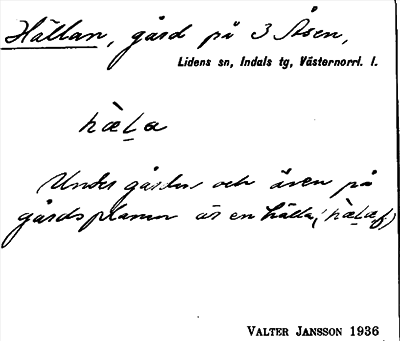 Hällan, gård på 3 Åsen,
Lidens sn, Indals tg, Västernorrl. l.
hæ̀l̠a
Under gården och även på
gårdsplanen är en hälla, (hæ̀l̠a f.)
VALTER JANSSON 1936